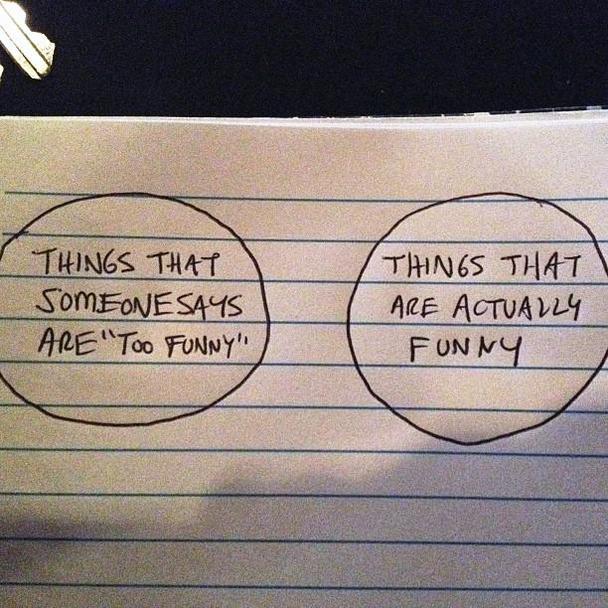 THINGS THAT
SOMEONE SAYS
ARE "TOO FUNNY"
THINGS THAT
ARE ACTUALLY
FUNNY